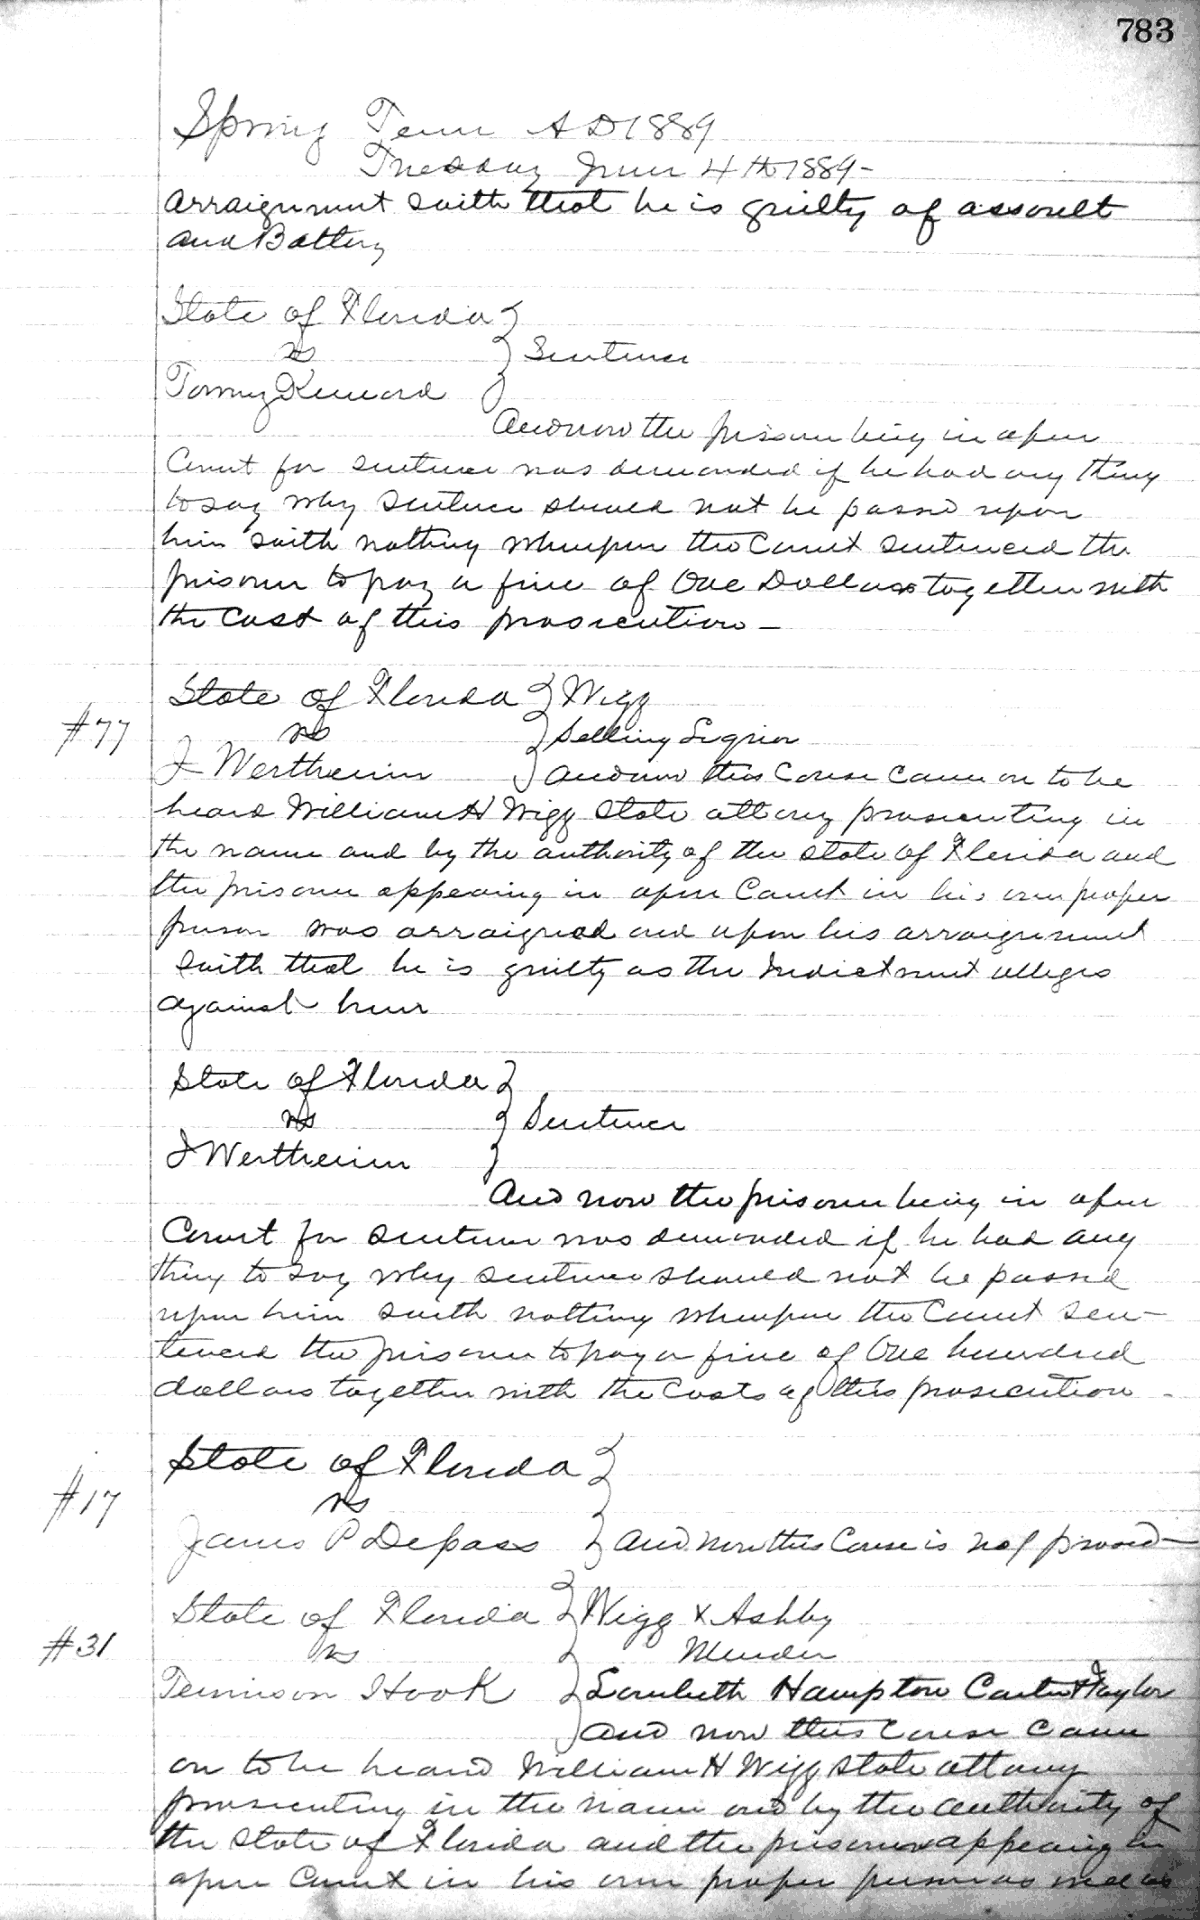 783
Spring Term A D 1889
Tuesday June 4th 1889-
arraignment saith that he is guilty of assault
and Battery
State of Florida
vs
Sentence
Tomy
And now the prisoner being in open
Court for sentence was demanded if he had any thing
to say why sentence should not be passed upon
him saith nothing whereupon the Court sentenced the
prisoner to pay a fine of One Dollars together with
the Cost of this prosecution -
State of Florida Wigg
#77 vs Selling Liquor
J Wertheim and now this Cause came on to be
heard William H Wigg State attorney prosecuting in
the name and by the authority of the State of Florida and
the prisoner appearing in open Court in his own proper
person was arraigned and upon his arraignment
saith that he is guilty as the Indictment alleges
against him
State of Florida
vs Sentence
J Wertheim
And now the prisoner being in open
Court for sentence was demanded if he had any
thing to say why sentence should not be passed
upon him saith nothing whereupon the Court sen-
tenced the prisoner to pay a fine of One hundred
dollars together with the Costs of this prosecution -
State of Florida
#17 vs
James P Depass and now this Cause is nol prosed -
State of Florida Wigg & Ashby
#31 vs Murder
Tennison Hook Hampton Carter & Taylor
and now this Cause Came
on to be heard William H Wigg State attorney
prosecuting in the name and by the authority of
the State of Florida and the prisoner appearing in
open Court in his own proper person as well as